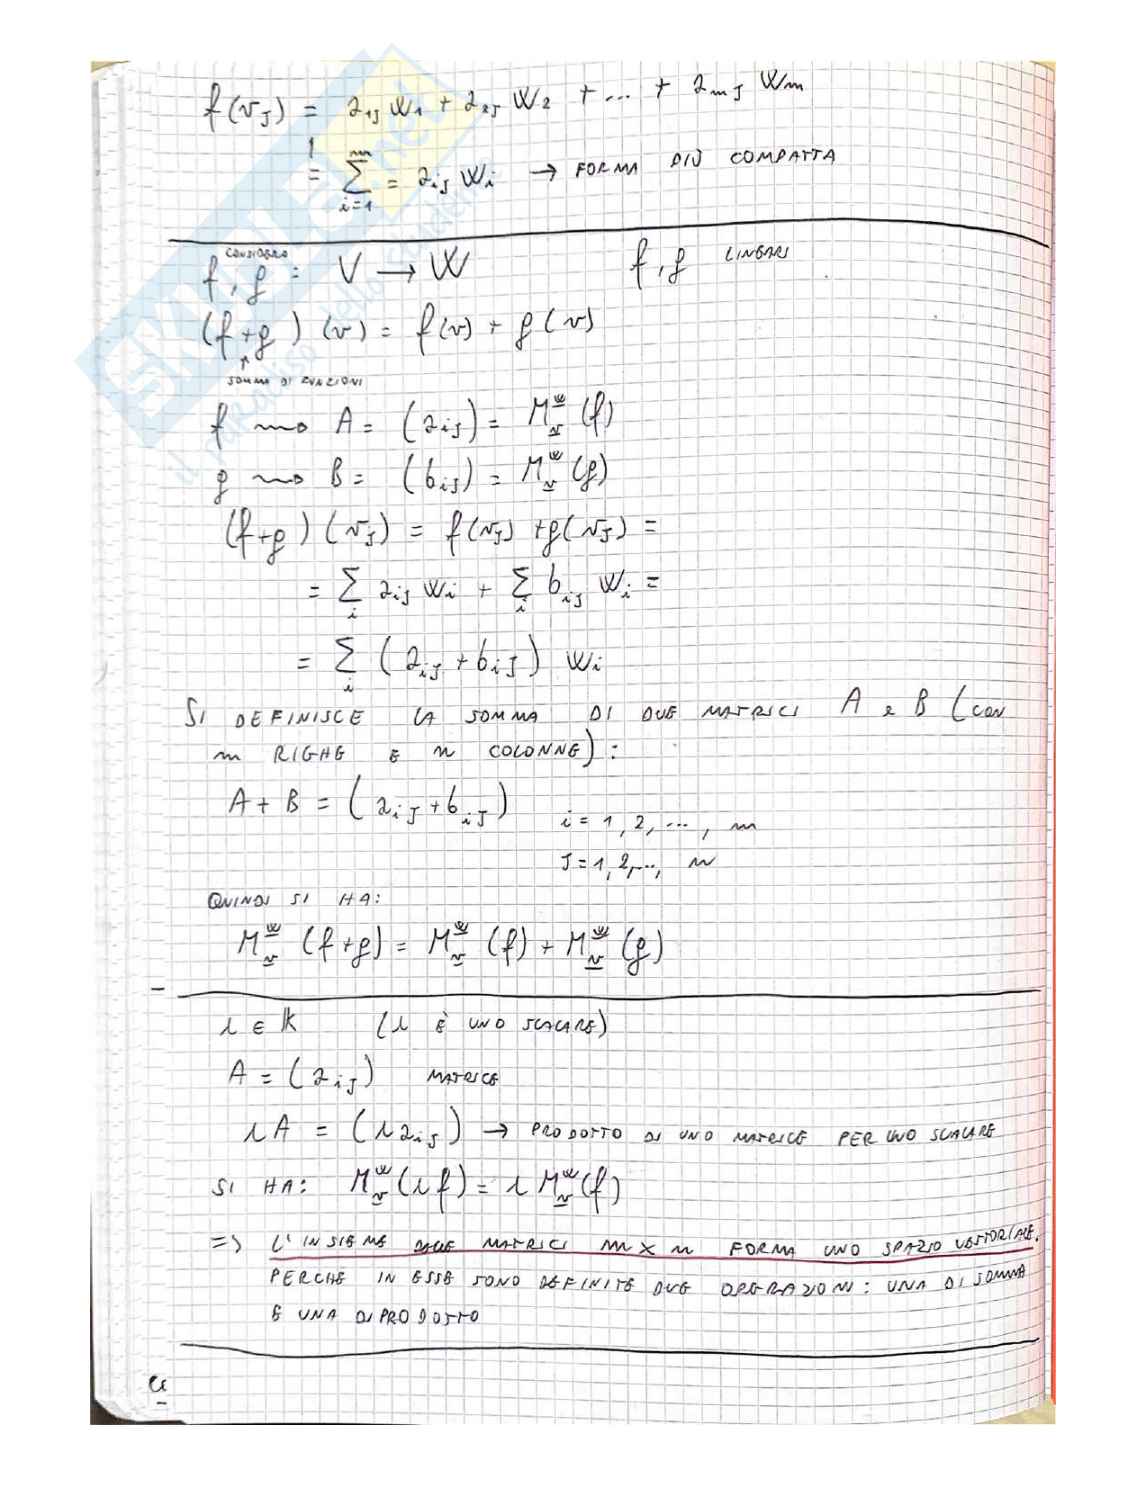 f(vJ) = a1J w1 + a2J w2 + ... + amJ wm
= Σ i=1 m = aiJ wi → FORMA PIÙ COMPATTA
CONSIDERO
f, g : V → W f, g LINEARI
(f+g) (v) = f(v) + g(v)
↑
SOMMA DI FUNZIONI
f ⇝ A = (aiJ) = M w v (f)
g ⇝ B = (biJ) = M w v (g)
(f+g) (vJ) = f(vJ) + g(vJ) =
= Σ i aiJ wi + Σ i biJ wi =
= Σ i (aiJ + biJ) wi
SI DEFINISCE LA SOMMA DI DUE MATRICI A e B (CON
m RIGHE E n COLONNE) :
A + B = (aiJ + biJ) i = 1, 2, ..., m
J = 1, 2, ..., n
QUINDI SI HA:
M w v (f+g) = M w v (f) + M w v (g)
λ ∈ K (λ È UNO SCALARE)
A = (aiJ) MATRICE
λA = (λaiJ) → PRODOTTO DI UNO MATRICE PER UNO SCALARE
SI HA: M w v (λf) = λ M w v (f)
=> L'INSIEME DELLE MATRICI m x n FORMA UNO SPAZIO VETTORIALE.
PERCHE IN ESSE SONO DEFINITE DUE OPERAZIONI: UNA DI SOMMA
E UNA DI PRODOTTO
SKUOLA.net
il paradiso dello studente